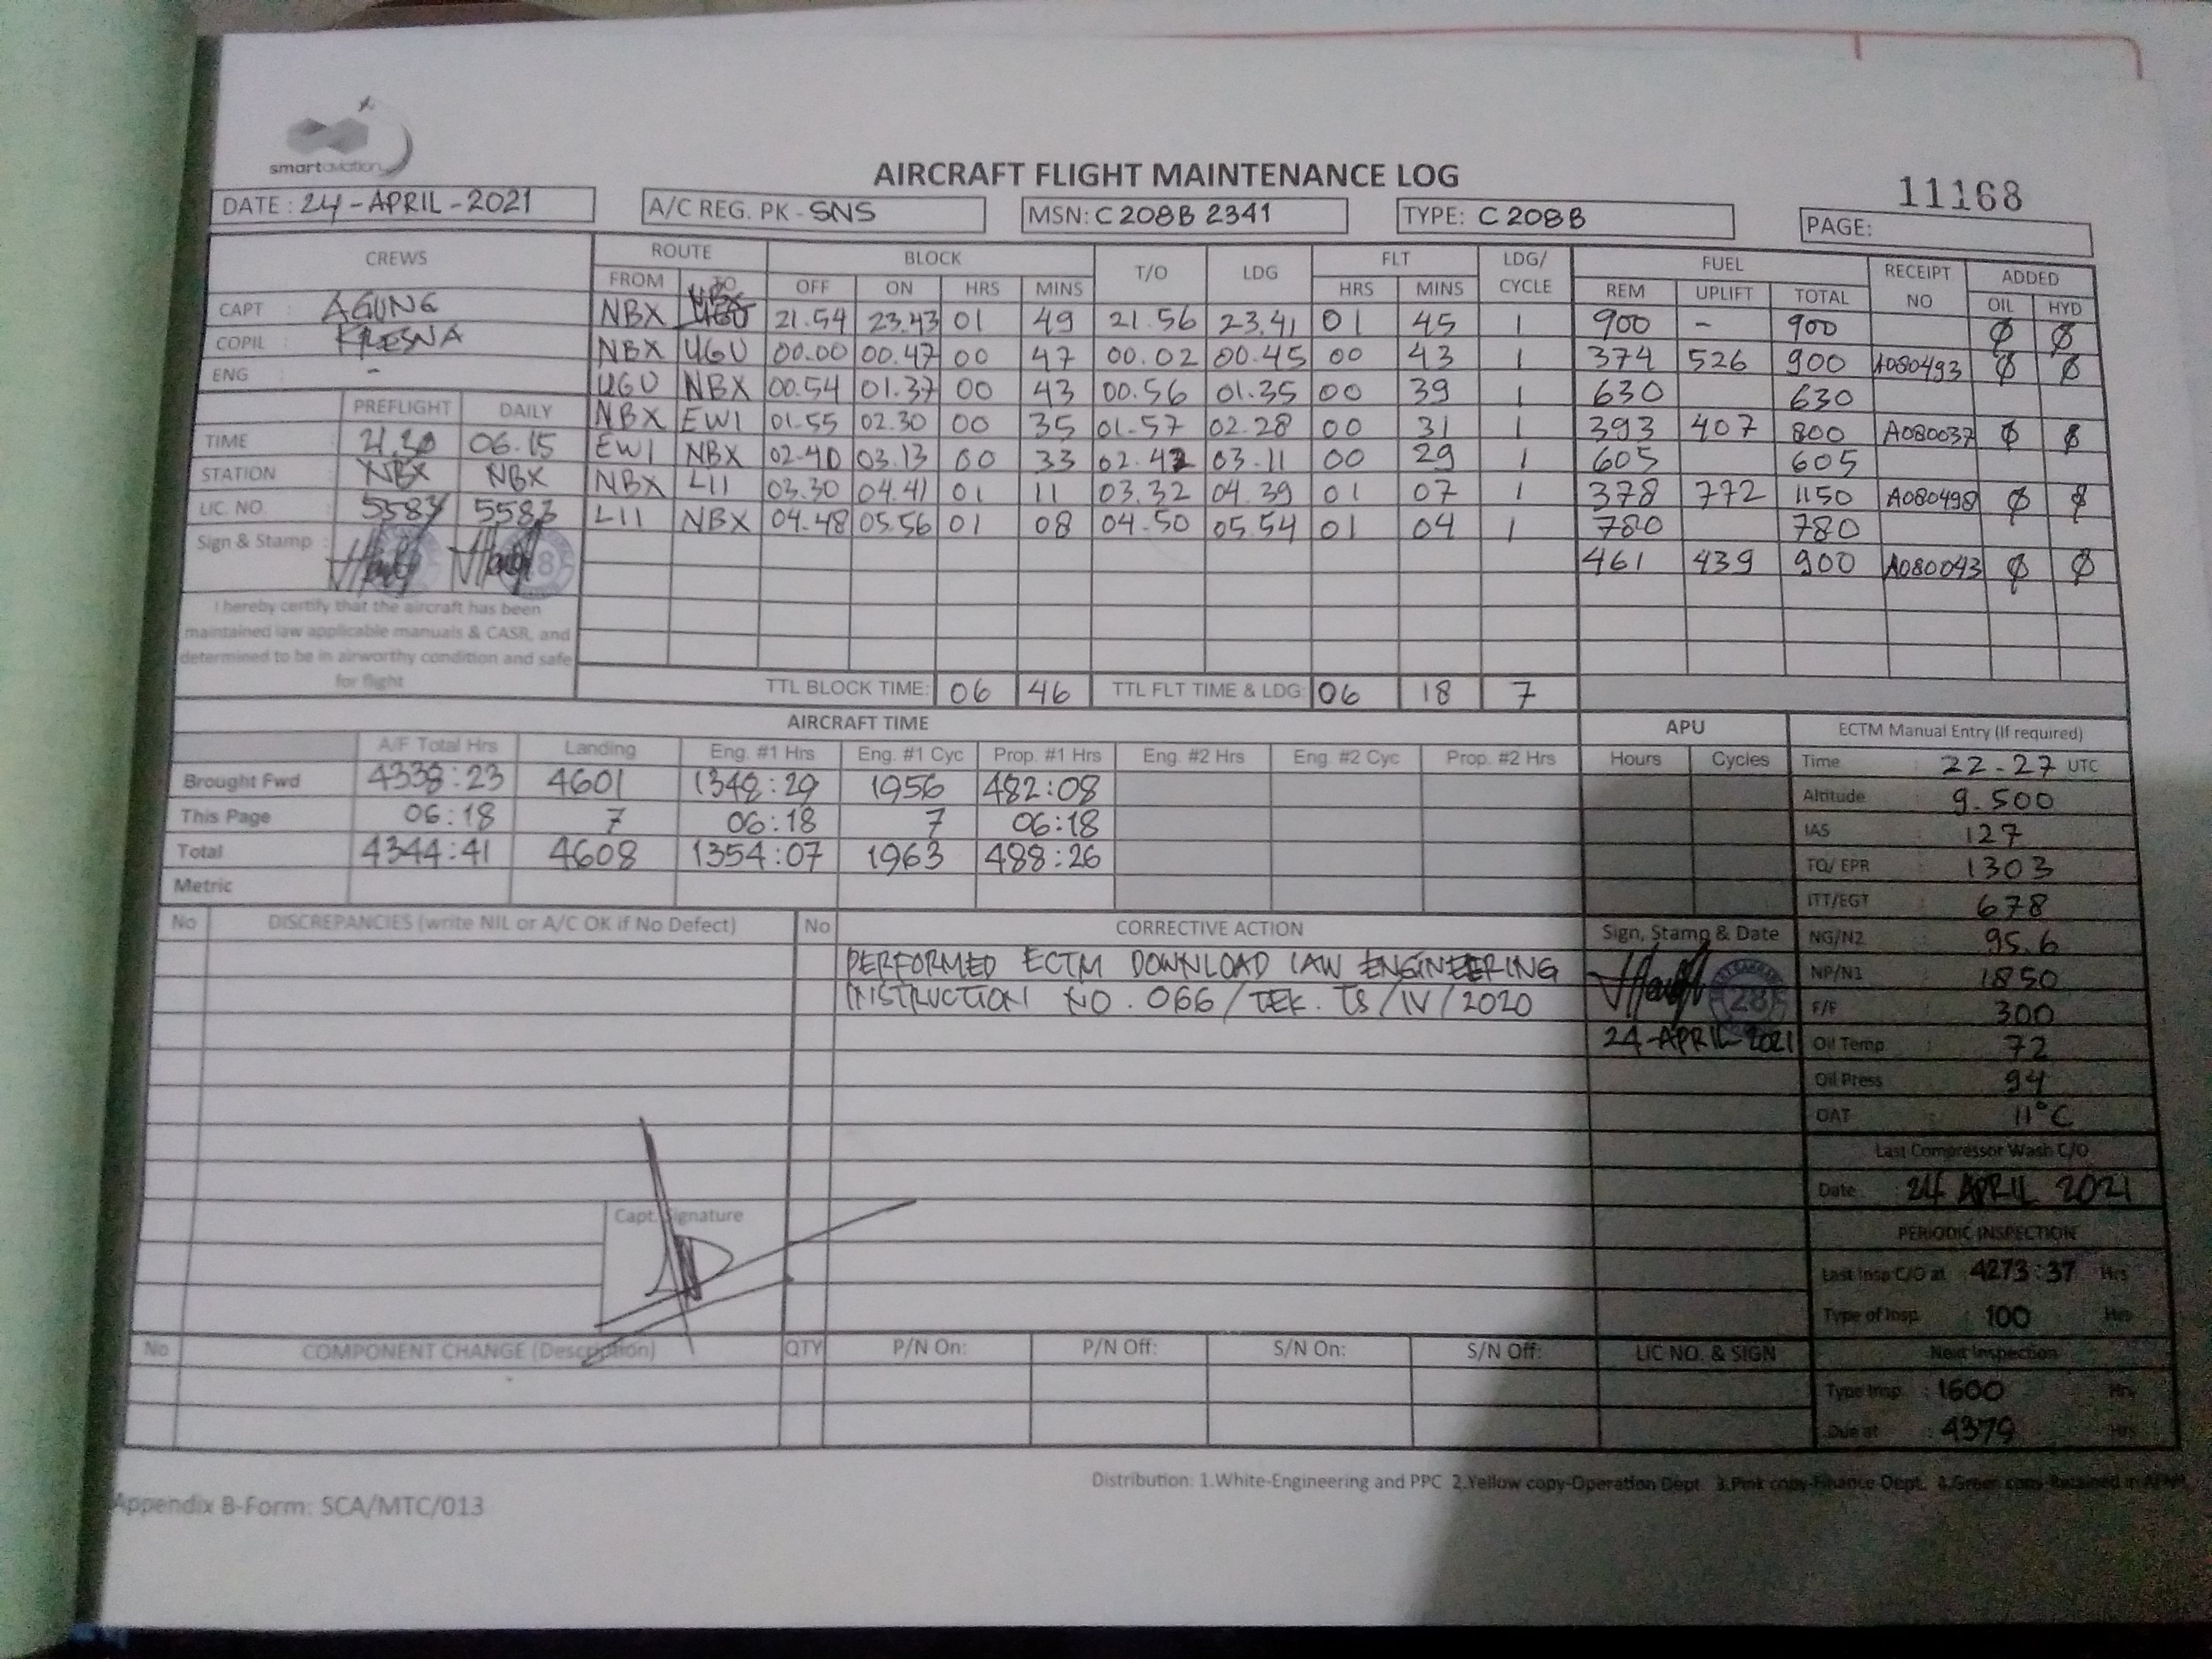 smartaviation
AIRCRAFT FLIGHT MAINTENANCE LOG
11168
DATE : 24-APRIL-2021 A/C REG. PK - SNS MSN: C208B 2341 TYPE: C208B PAGE:
CREWS ROUTE BLOCK T/O LDG FLT LDG/ CYCLE FUEL RECEIPT NO ADDED
FROM TO OFF ON HRS MINS HRS MINS REM UPLIFT TOTAL OIL HYD
CAPT : AGUNG
COPIL : KRESNA
ENG : -
NBX 21.54 23.43 01 49 21.56 23.41 01 45 1 900 - 900 Ø Ø
NBX UGU 00.00 00.47 00 47 00.02 00.45 00 43 1 374 526 900 A080493 Ø Ø
UGU NBX 00.54 01.37 00 43 00.56 01.35 00 39 1 630 630
NBX EWI 01.55 02.30 00 35 01.57 02.28 00 31 1 393 407 800 A080037 Ø Ø
EWI NBX 02.40 03.13 00 33 02.42 03.11 00 29 1 605 605
NBX LII 03.30 04.41 01 11 03.32 04.39 01 07 1 378 772 1150 A080498 Ø Ø
LII NBX 04.48 05.56 01 08 04.50 05.54 01 04 1 780 780
461 439 900 A080043 Ø Ø
PREFLIGHT DAILY
TIME : 21.30 06.15
STATION : NBX NBX
LIC. NO. : 5583 5583
Sign & Stamp :
I hereby certify that the aircraft has been
maintained iaw applicable manuals & CASR, and
determined to be in airworthy condition and safe
for flight
TTL BLOCK TIME: 06 46 TTL FLT TIME & LDG: 06 18 7
AIRCRAFT TIME APU
A/F Total Hrs Landing Eng. #1 Hrs Eng. #1 Cyc Prop. #1 Hrs Eng. #2 Hrs Eng. #2 Cyc Prop. #2 Hrs Hours Cycles
Brought Fwd 4338:23 4601 1348:29 1956 482:08
This Page 06:18 7 06:18 7 06:18
Total 4344:41 4608 1354:07 1963 488:26
Metric
ECTM Manual Entry (If required)
Time : 22-27 UTC
Altitude : 9.500
IAS : 127
TQ/ EPR : 1303
ITT/EGT : 678
NG/N2 : 95.6
NP/N1 : 1850
F/F : 300
Oil Temp : 72
Oil Press : 94
OAT : 11°C
Last Compressor Wash C/O
Date : 24 APRIL 2021
PERIODIC INSPECTION
Last Insp C/O at : 4273:37 Hrs
Type of Insp : 100 Hrs
Next Inspection
Type Insp : 1600 Hrs
Due at : 4379 Hrs
No DISCREPANCIES (write NIL or A/C OK if No Defect) No CORRECTIVE ACTION Sign, Stamp & Date
PERFORMED ECTM DOWNLOAD IAW ENGINEERING
INSTRUCTION NO. 066/TEK.TS/IV/2020
28
24-APRIL-2021
Capt. Signature
No COMPONENT CHANGE (Description) QTY P/N On: P/N Off: S/N On: S/N Off: LIC NO. & SIGN
Distribution: 1.White-Engineering and PPC 2.Yellow copy-Operation Dept. 3.Pink copy-Finance Dept. 4.Green copy-Retained in
Appendix B-Form: SCA/MTC/013